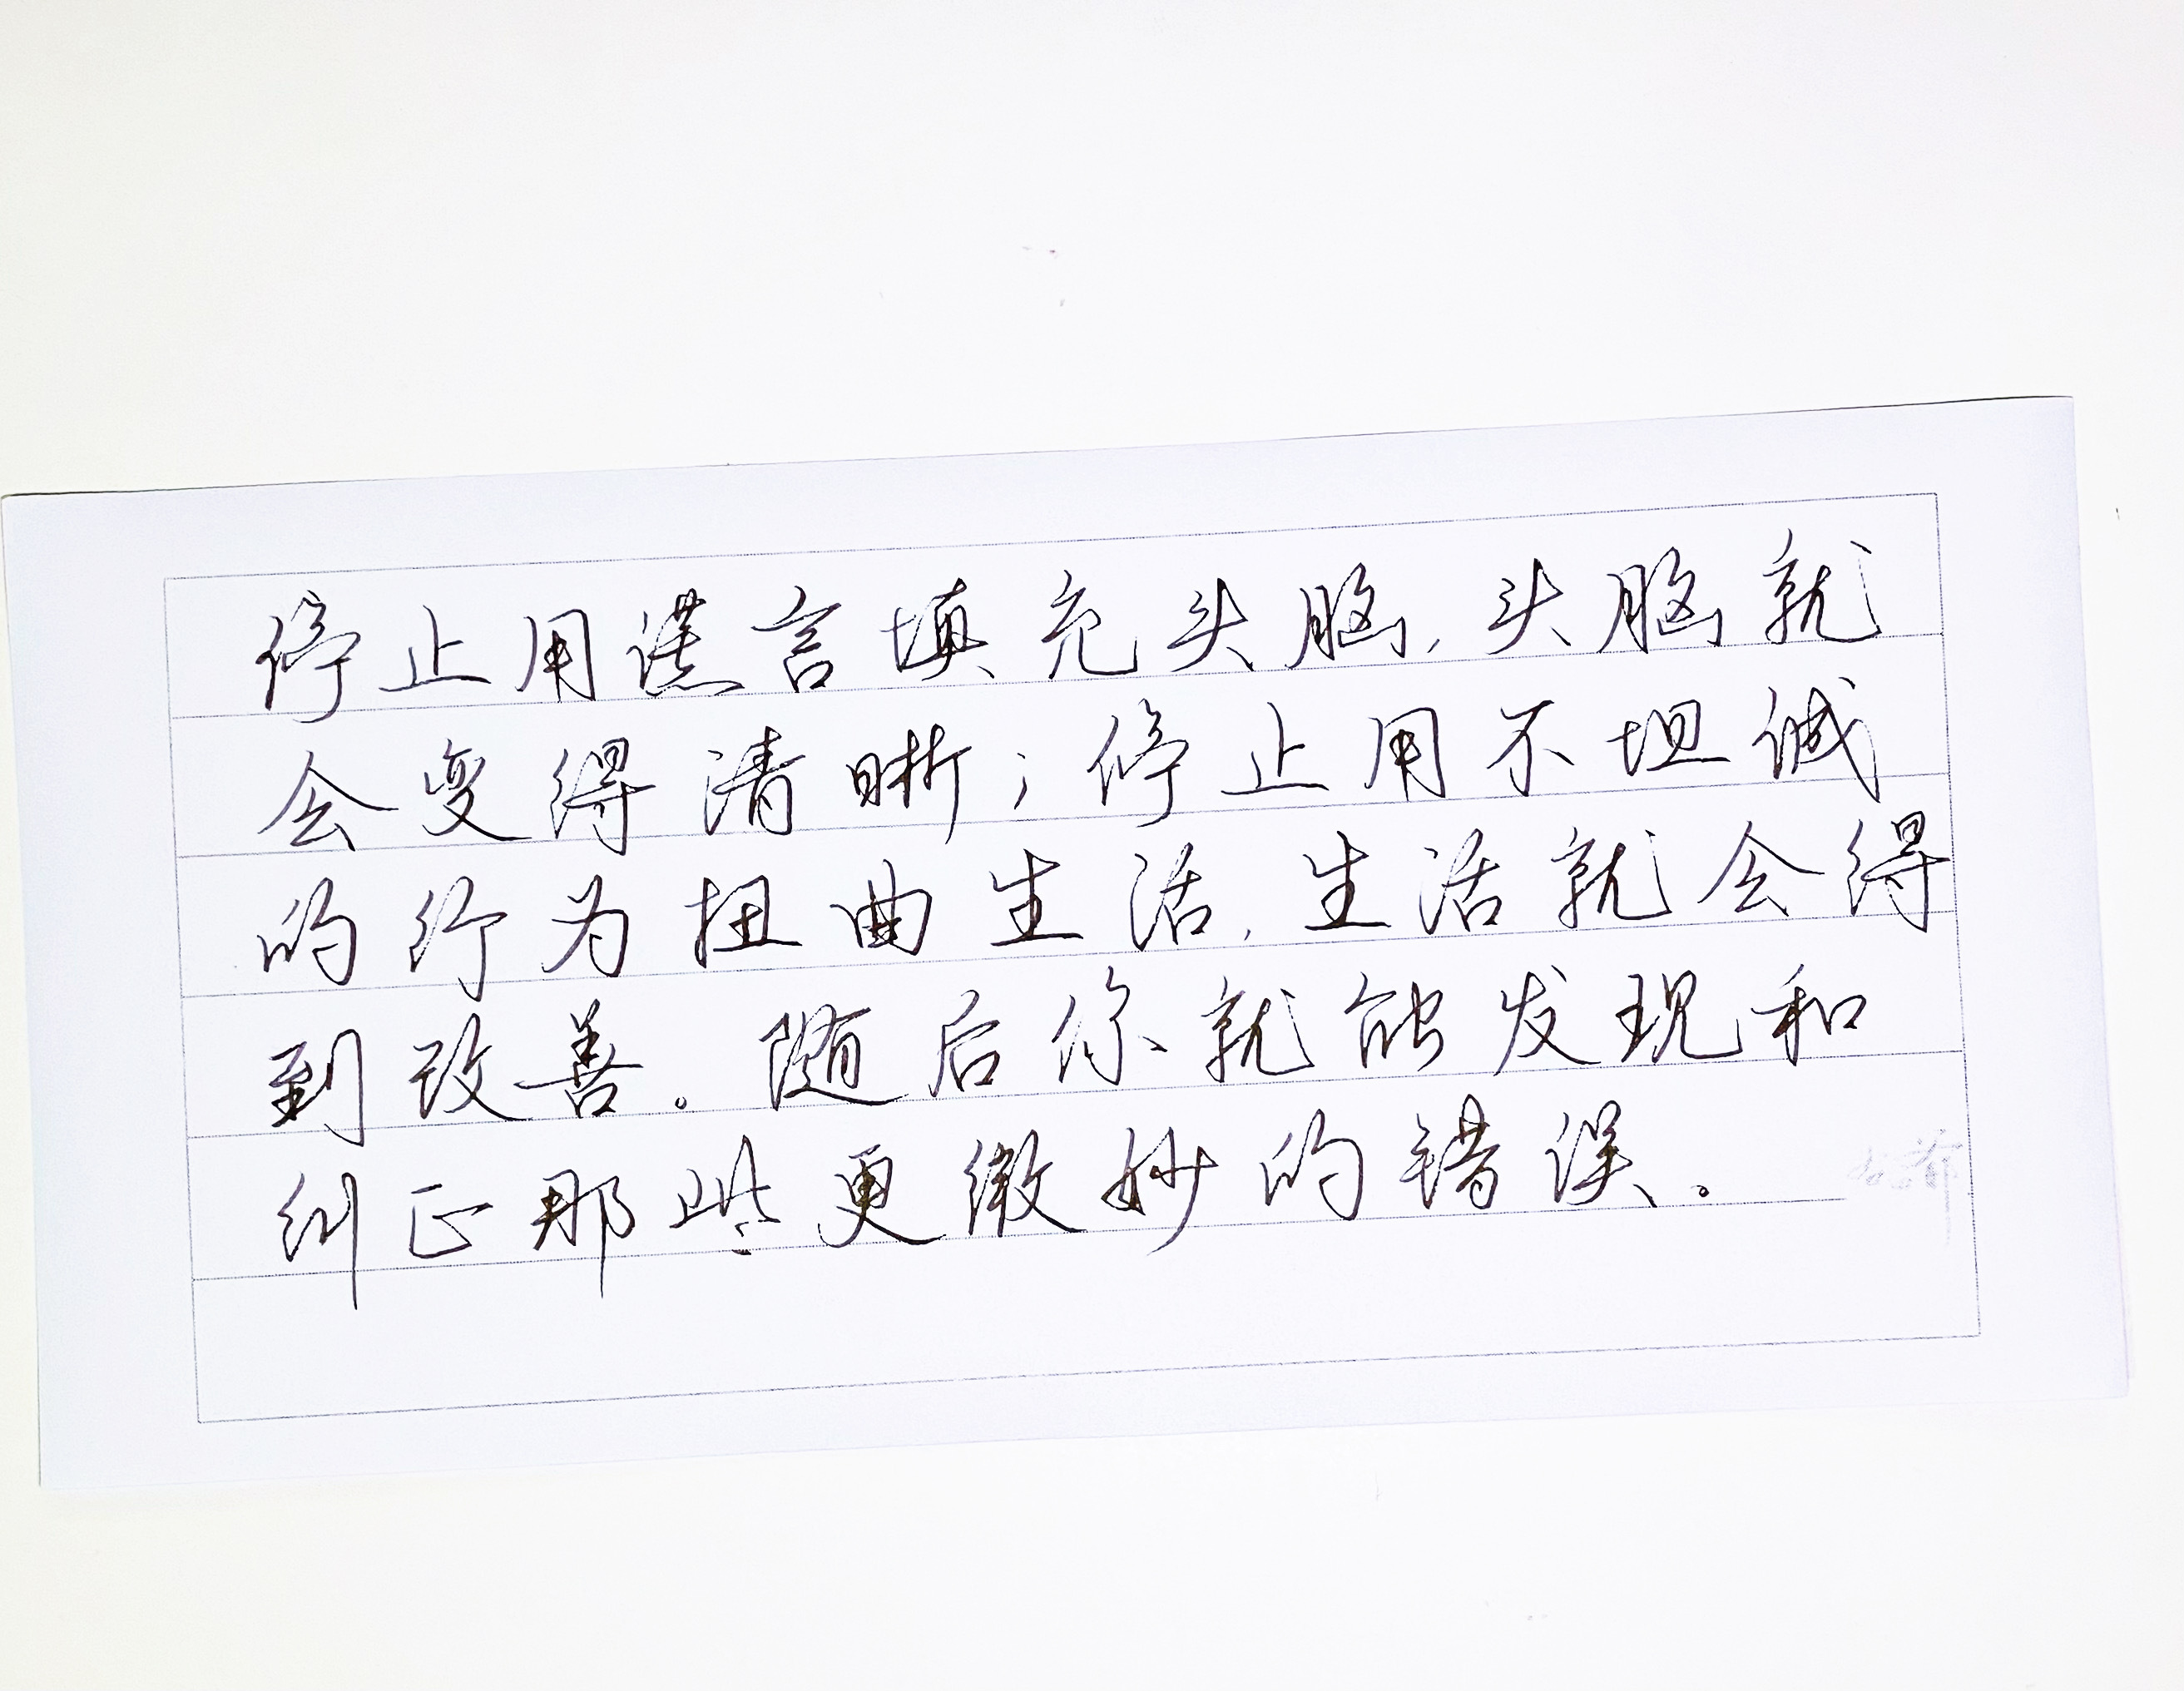 停止用谎言填充头脑，头脑就
会变得清晰；停止用不坦诚
的行为扭曲生活，生活就会得
到改善。随后你就能发现和
纠正那些更微妙的错误。